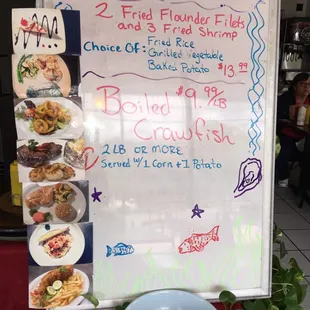 2 Fried Flounder Filets
and 3 Fried Shrimp
Choice Of: Fried Rice
Grilled vegetable
Baked Potato $13.99
Boiled $9.99/LB
Crawfish
2 LB OR MORE
Served w/1 Corn + 1 Potato